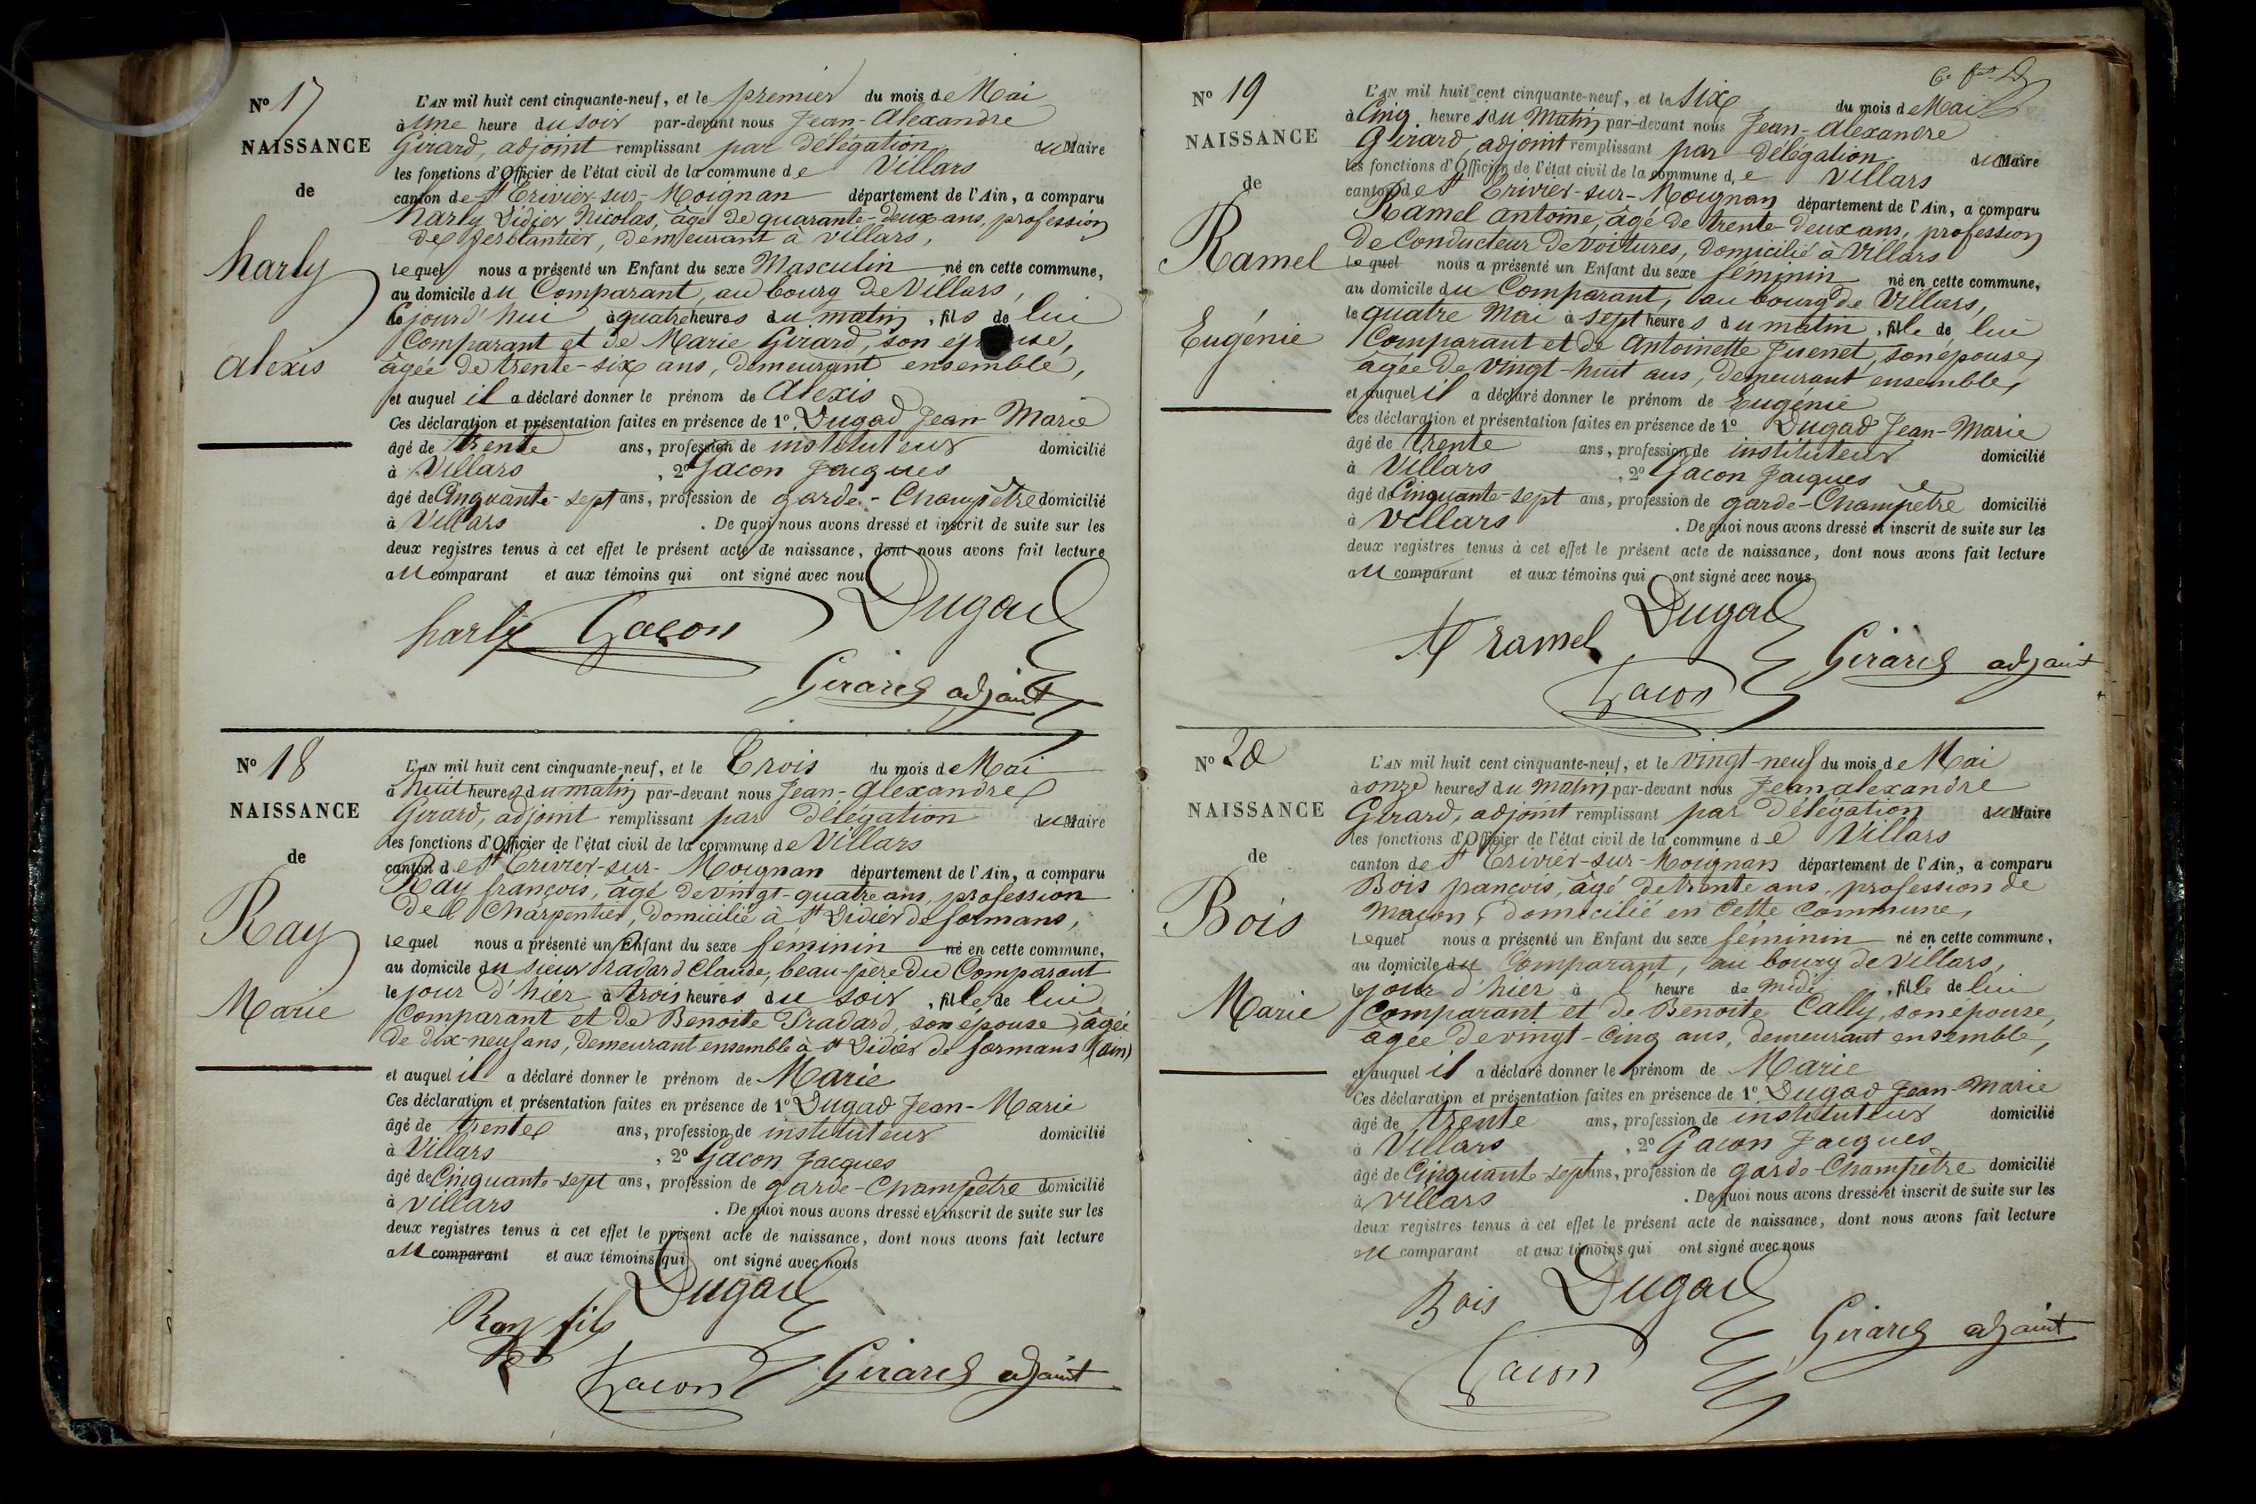 N° 17
NAISSANCE
de
harly
alexis
L'AN mil huit cent cinquante-neuf, et le premier du mois de Mai
à une heure du soir par-devant nous Jean-Alexandre
Girard, adjoint remplissant par délégation du Maire
les fonctions d'Officier de l'état civil de la commune de Villars
canton de St Trivier-sur-Moignan département de l'Ain, a comparu
harly Didier Nicolas, âgé de quarante-deux ans, profession
de ferblantier, demeurant à villars,
lequel nous a présenté un Enfant du sexe Masculin né en cette commune,
au domicile du Comparant, au bourg de Villars,
Cejourd'hui à quatre heures du matin, fils de lui
Comparant et de Marie Girard, son épouse,
âgée de trente-six ans, demeurant ensemble,
et auquel il a déclaré donner le prénom de Alexis
Ces déclaration et présentation faites en présence de 1° Dugad Jean-Marie
âgé de trente ans, profession de instituteur domicilié
à Villars, 2° Gacon Jacques
âgé de Cinquante-sept ans, profession de garde-Champêtre domicilié
à Villars. De quoi nous avons dressé et inscrit de suite sur les
deux registres tenus à cet effet le présent acte de naissance, dont nous avons fait lecture
au comparant et aux témoins qui ont signé avec nous
harly Gacon Dugad
Girard adjoint
N° 18
NAISSANCE
de
Ray
Marie
L'AN mil huit cent cinquante-neuf, et le Trois du mois de Mai
à huit heures du matin par-devant nous Jean-Alexandre
Girard, adjoint remplissant par délégation du Maire
les fonctions d'Officier de l'état civil de la commune de Villars
canton de St Trivier-sur-Moignan département de l'Ain, a comparu
Ray françois, âgé de vingt-quatre ans, profession
de Charpentier, domicilié à St Didier de formans,
lequel nous a présenté un Enfant du sexe féminin né en cette commune,
au domicile du sieur Pradard Claude, beau-père du Comparant
le jour d'hier à trois heures du soir, fille de lui
Comparant et de Benoite Pradard, son épouse, âgée
de dix-neuf ans, demeurant ensemble à St Didier de formans (ain)
et auquel il a déclaré donner le prénom de Marie
Ces déclaration et présentation faites en présence de 1° Dugad Jean-Marie
âgé de trente ans, profession de instituteur domicilié
à Villars, 2° Gacon Jacques
âgé de Cinquante-sept ans, profession de garde-Champêtre domicilié
à villars. De quoi nous avons dressé et inscrit de suite sur les
deux registres tenus à cet effet le présent acte de naissance, dont nous avons fait lecture
au comparant et aux témoins qui ont signé avec nous
Ray fils Dugad
Gacon Girard adjoint
N° 19
NAISSANCE
de
Ramel
Eugénie
L'AN mil huit cent cinquante-neuf, et le six du mois de Mai
à Cinq heures du Matin par-devant nous Jean-Alexandre
Girard, adjoint remplissant par délégation du Maire
les fonctions d'Officier de l'état civil de la commune de Villars
canton de St Trivier-sur-Moignan département de l'Ain, a comparu
Ramel antoine, âgé de trente deux ans, profession
de Conducteur de voitures, domicilié à Villars
lequel nous a présenté un Enfant du sexe féminin né en cette commune,
au domicile du Comparant, au bourg de Villars,
le quatre Mai à sept heures du matin, fille de lui
Comparant et de Antoinette Juenet, son épouse,
âgée de vingt-huit ans, demeurant ensemble,
et auquel il a déclaré donner le prénom de Eugénie
Ces déclaration et présentation faites en présence de 1° Dugad Jean-Marie
âgé de trente ans, profession de instituteur domicilié
à Villars, 2° Gacon Jacques
âgé de Cinquante-sept ans, profession de garde-Champêtre domicilié
à Villars. De quoi nous avons dressé et inscrit de suite sur les
deux registres tenus à cet effet le présent acte de naissance, dont nous avons fait lecture
au comparant et aux témoins qui ont signé avec nous
ramel Dugad
Gacon Girard adjoint
N° 20
NAISSANCE
de
Bois
Marie
L'AN mil huit cent cinquante-neuf, et le vingt-neuf du mois de Mai
à onze heures du Matin par-devant nous Jean alexandre
Girard, adjoint remplissant par délégation du Maire
les fonctions d'Officier de l'état civil de la commune de Villars
canton de St Trivier-sur-Moignan département de l'Ain, a comparu
Bois françois, âgé de trente ans, profession de
Maçon, domicilié en cette Commune,
Lequel nous a présenté un Enfant du sexe féminin né en cette commune,
au domicile du Comparant, au bourg de Villars,
le jour d'hier à l'heure de midi, fille de lui
Comparant et de Benoite Cally, son épouse,
âgée de vingt-Cinq ans, demeurant ensemble,
et auquel il a déclaré donner le prénom de Marie
Ces déclaration et présentation faites en présence de 1° Dugad Jean-Marie
âgé de trente ans, profession de instituteur domicilié
à Villars, 2° Gacon Jacques
âgé de Cinquante-sept ans, profession de garde-Champêtre domicilié
à Villars. De quoi nous avons dressé et inscrit de suite sur les
deux registres tenus à cet effet le présent acte de naissance, dont nous avons fait lecture
au comparant et aux témoins qui ont signé avec nous
Bois Dugad
Gacon Girard adjoint